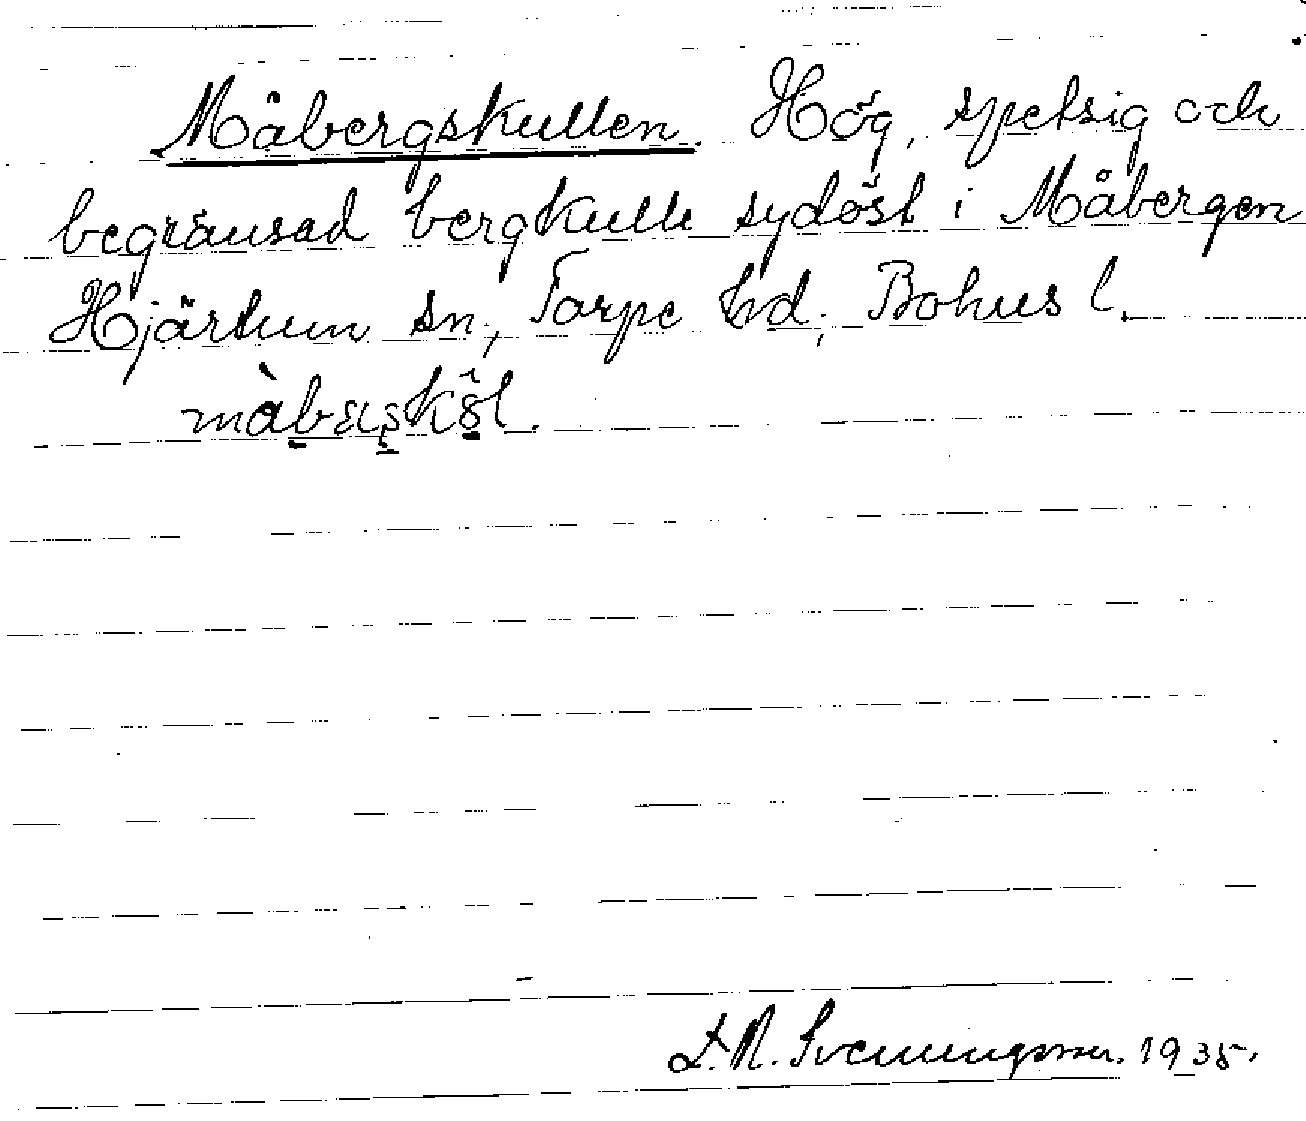 Måbergskullen. Hög, spetsig och
begränsad bergkulle sydöst i Måbergen
Hjärtum sn, Torpe hd, Bohus l.
D.N. Svenningsson. 1935.